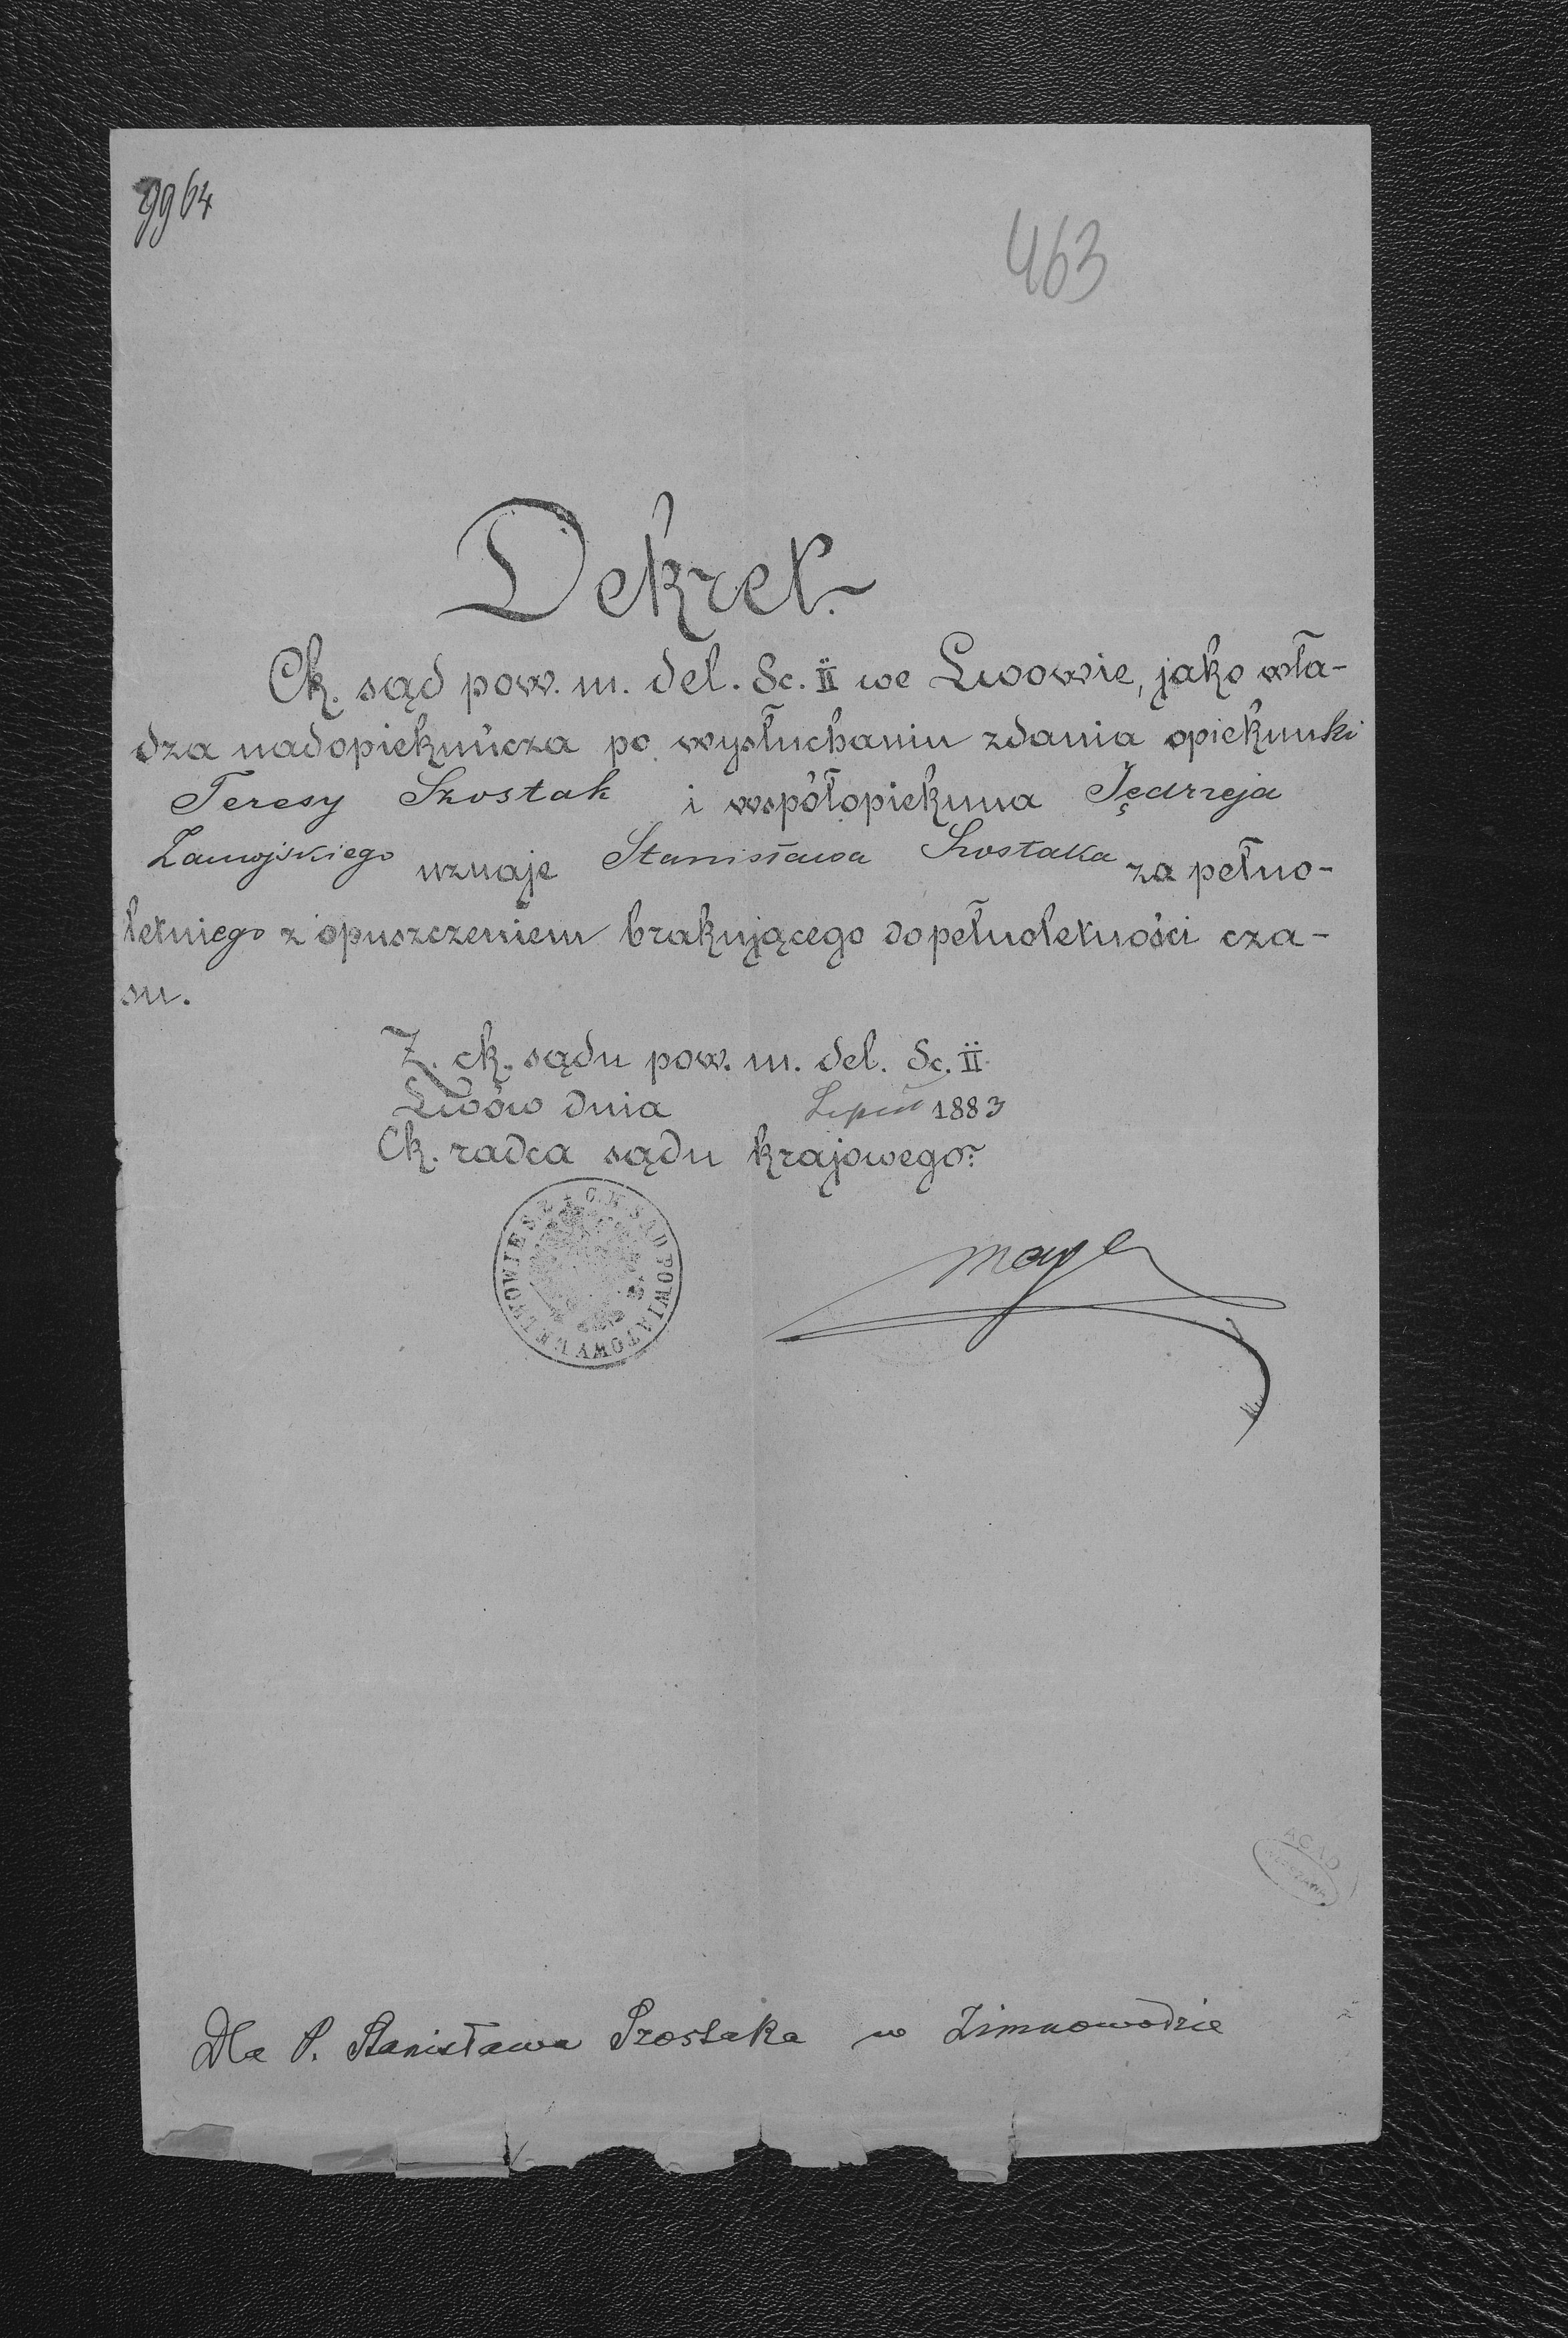 9964
463
Dekret.
Ck. sąd pow. m. del. Sc. II we Lwowie, jako wła-
dza nadopiekuńcza po wysłuchaniu zdania opiekunki
Teresy Szostak i współopiekuna Jędrzeja
Zamojskiego uznaje Stanisława Szostaka za pełno-
letniego z opuszczeniem brakującego do pełnoletności cza-
su.
Z. ck. sądu pow. m. del. Sc. II
Lwów dnia 1883
Ck. radca sądu krajowego:
C. K. SĄD POWIATOWY WE LWOWIE
Mayer
AGAD
Dla P. Stanisława Szostaka w Zimnowodzie